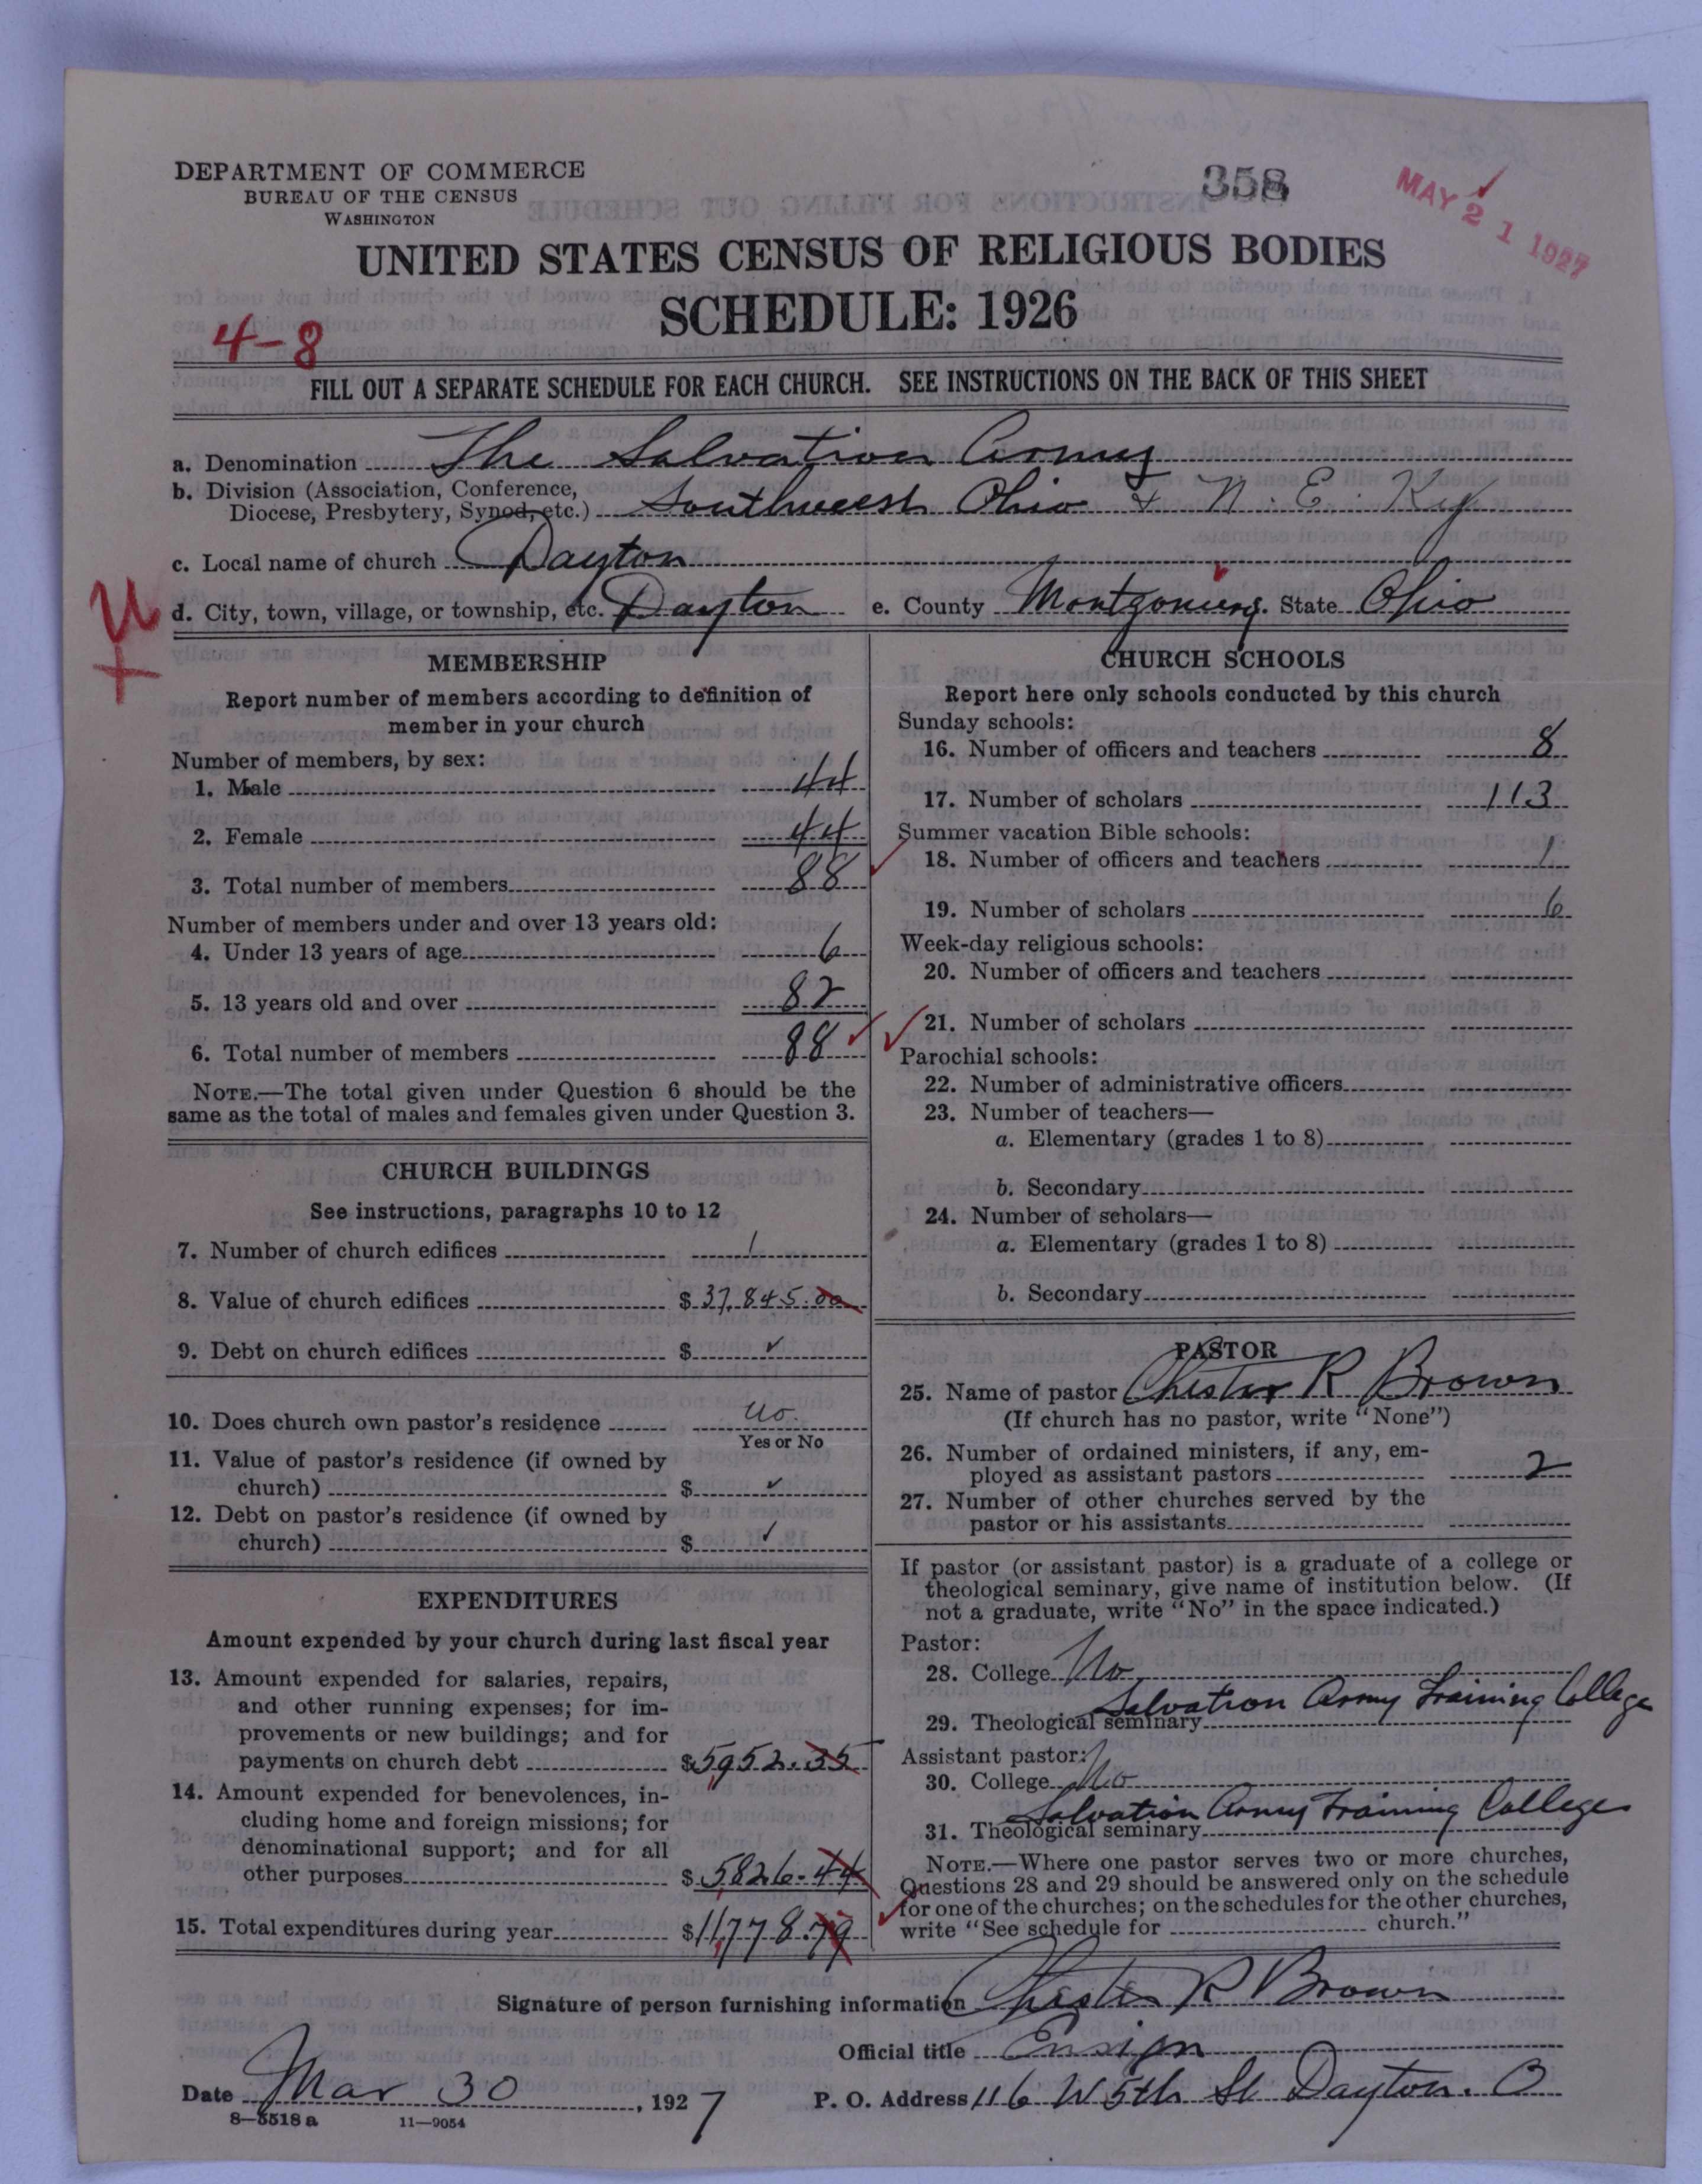 DEPARTMENT OF COMMERCE
BUREAU OF THE CENSUS
WASHINGTON
358
MAY 21 1927
UNITED STATES CENSUS OF RELIGIOUS BODIES
SCHEDULE: 1926
4-8
FILL OUT A SEPARATE SCHEDULE FOR EACH CHURCH. SEE INSTRUCTIONS ON THE BACK OF THIS SHEET
a. Denomination The Salvation Army
b. Division (Association, Conference,
Diocese, Presbytery, Synod, etc.) Southwest Ohio & N. E. Ky
c. Local name of church Dayton
U
d. City, town, village, or township, etc. Dayton e. County Montgomery. State Ohio
MEMBERSHIP
Report number of members according to definition of
member in your church
Number of members, by sex:
1. Male 44
2. Female 44
3. Total number of members 88
Number of members under and over 13 years old:
4. Under 13 years of age 6
5. 13 years old and over 82
6. Total number of members 88 ✓
NOTE.—The total given under Question 6 should be the
same as the total of males and females given under Question 3.
CHURCH BUILDINGS
See instructions, paragraphs 10 to 12
7. Number of church edifices 1
8. Value of church edifices $37,845.00
9. Debt on church edifices $ ✓
10. Does church own pastor's residence no.
Yes or No
11. Value of pastor's residence (if owned by
church) $ ✓
12. Debt on pastor's residence (if owned by
church) $ ✓
EXPENDITURES
Amount expended by your church during last fiscal year
13. Amount expended for salaries, repairs,
and other running expenses; for im-
provements or new buildings; and for
payments on church debt $5952.35
14. Amount expended for benevolences, in-
cluding home and foreign missions; for
denominational support; and for all
other purposes $5826.44
15. Total expenditures during year $11,778.79
CHURCH SCHOOLS
Report here only schools conducted by this church
Sunday schools:
16. Number of officers and teachers 8
17. Number of scholars 113
Summer vacation Bible schools:
18. Number of officers and teachers 1
19. Number of scholars 6
Week-day religious schools:
20. Number of officers and teachers
21. Number of scholars
Parochial schools:
22. Number of administrative officers
23. Number of teachers—
a. Elementary (grades 1 to 8)
b. Secondary
24. Number of scholars—
a. Elementary (grades 1 to 8)
b. Secondary
PASTOR
25. Name of pastor Chester R Brown
(If church has no pastor, write "None")
26. Number of ordained ministers, if any, em-
ployed as assistant pastors 2
27. Number of other churches served by the
pastor or his assistants
If pastor (or assistant pastor) is a graduate of a college or
theological seminary, give name of institution below. (If
not a graduate, write "No" in the space indicated.)
Pastor:
28. College No
29. Theological seminary Salvation Army Training College
Assistant pastor:
30. College No
31. Theological seminary Salvation Army Training College
NOTE.—Where one pastor serves two or more churches,
Questions 28 and 29 should be answered only on the schedule
for one of the churches; on the schedules for the other churches,
write "See schedule for church."
Signature of person furnishing information Chester R Brown
Official title Ensign
Date Mar 30, 1927 P. O. Address 116 W 5th St Dayton. O
8-5518 a 11-9054